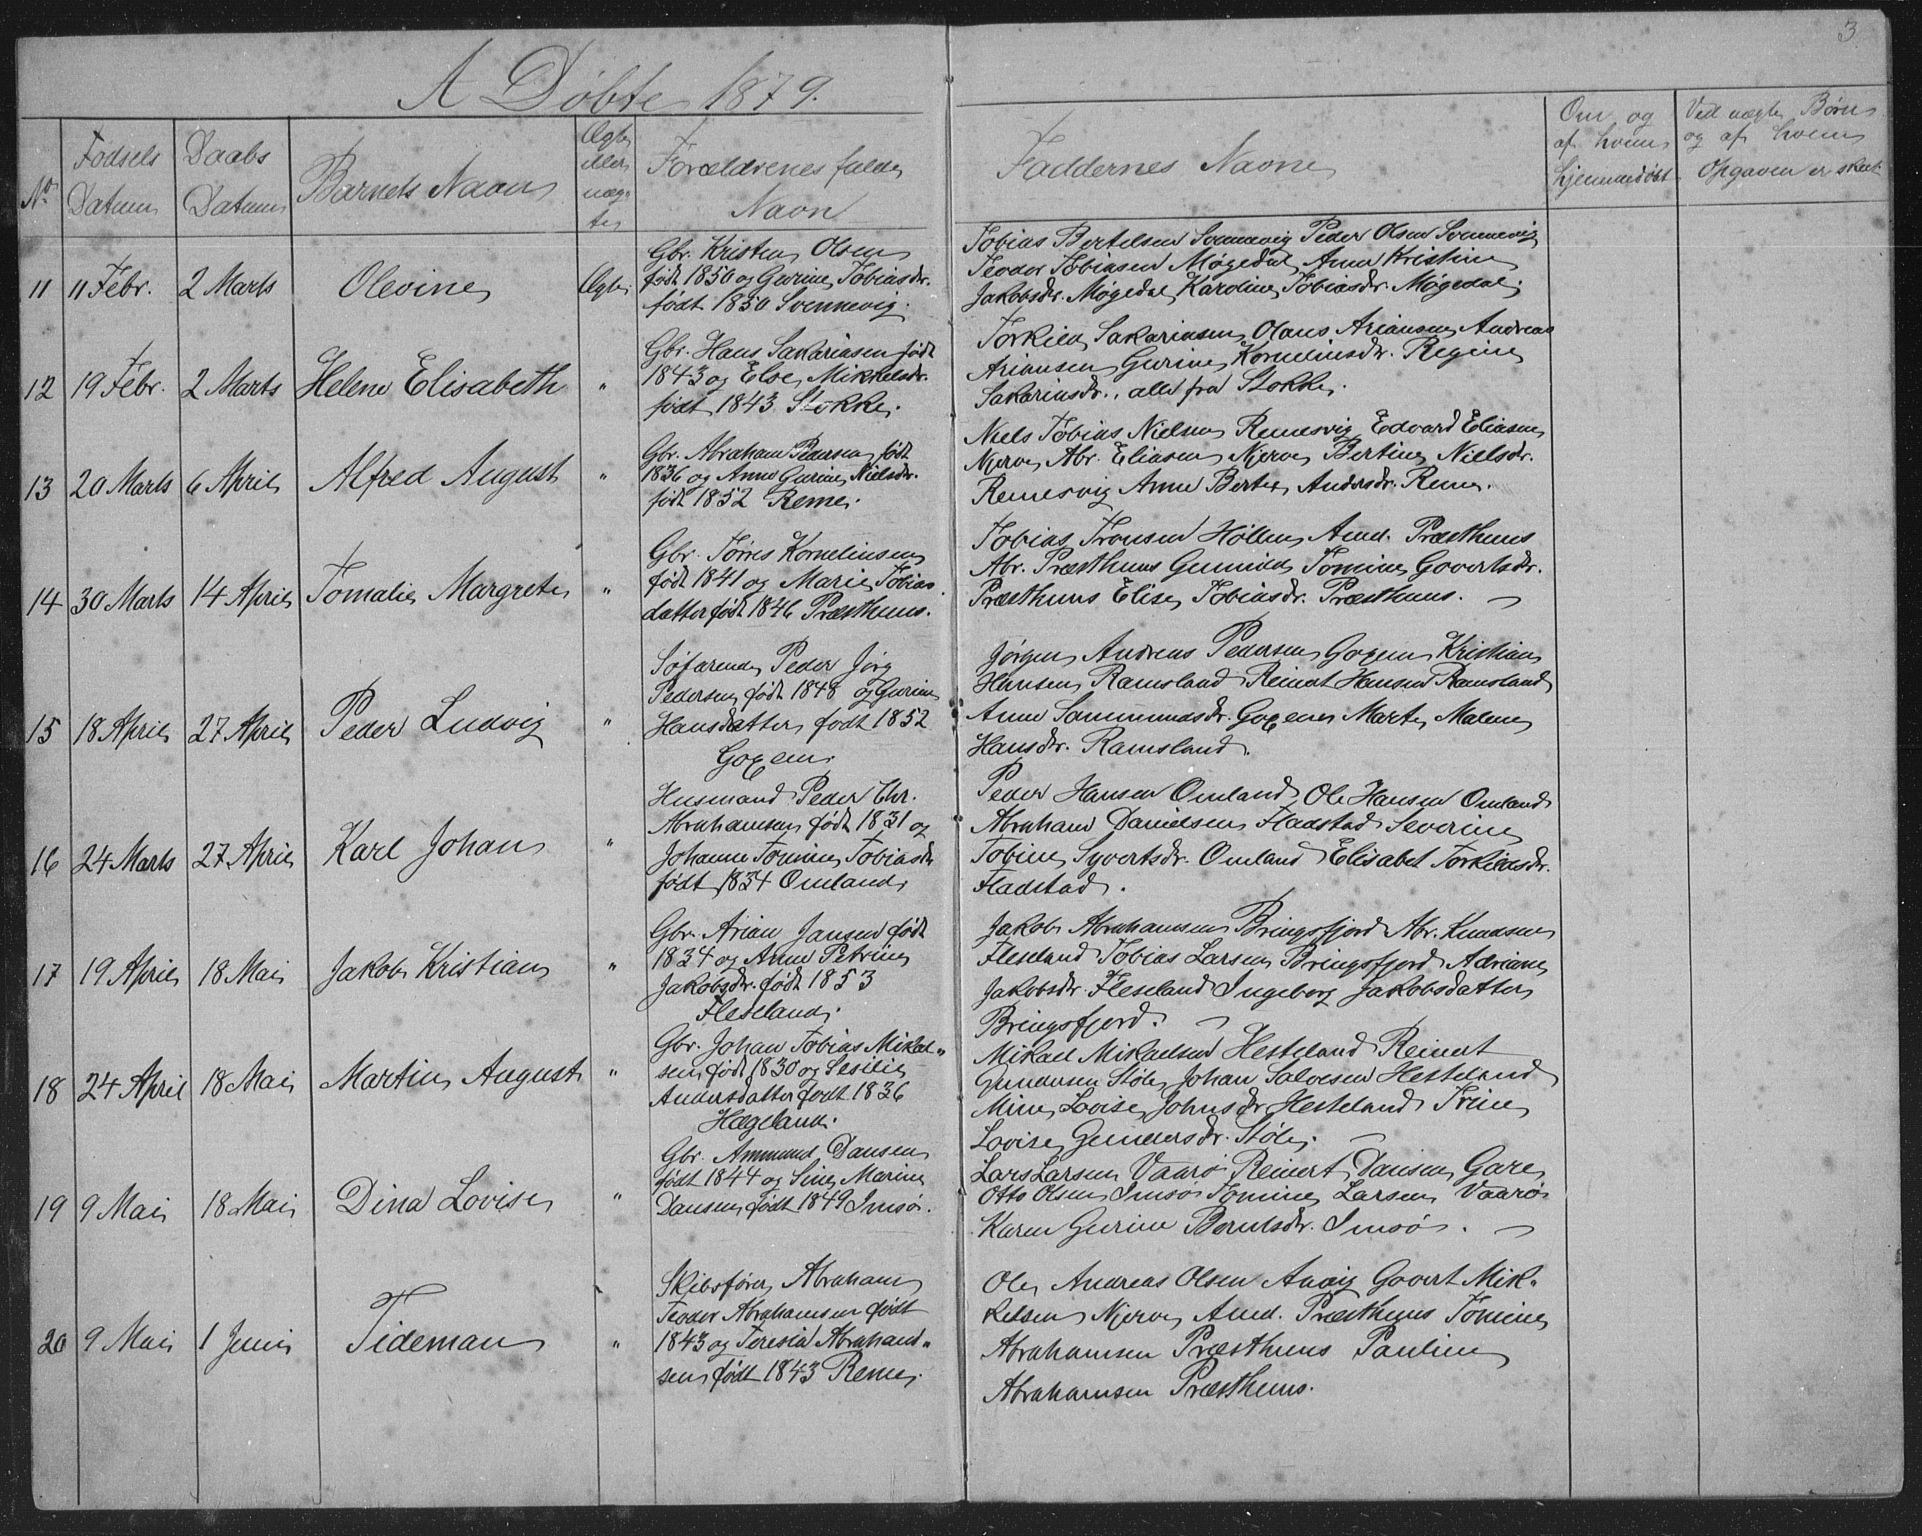 3
A Døbte 1879.
No
Fødsels Datum
Daabs Datum
Barnets Navn
Ægte eller uæg-te
Forældrenes fulde Navn
Faddernes Navne
Om og af hvem hjemmedøbt
Ved uægte Børn og af hvem Opgaven er skeet
11 11 Febr. 2 Marts Olevine Ægte
Gbr. Kristen Olsen
født 1850 og Gurine Tobiasdr.
født 1850 Svennevig.
Tobias Bertelsen Svennevig Peder Olsen Svennevig
Teodor Tobiasen Møgedal Anne Kristine
Jakobsdr. Møgedal Karoline Tobiasdr. Møgedal.
12 19 Febr. 2 Marts Helene Elisabeth "
Gbr. Hans Sakariasen født
1843 og Else Mikkelsdr.
født 1843 Stokke.
Torkild Sakariasen Olaus Ariansen Andreas
Ariansen Gurine Korneliusdr. Regine
Sakariasdr., alle fra Stokke.
13 20 Marts 6 April Alfred August "
Gbr. Abraham Pedersen født
1836 og Anne Gurine Nielsdr.
født 1852 Reme.
Niels Tobias Nielsen Remesvig Edvard Eliasen
Njerve Abr. Eliasen Njerve Bertine Nielsdr.
Remesvig Anne Berte Andersdr. Reme.
14 30 Marts 14 April Tomalie Margrete "
Gbr. Tørres Korneliusen
født 1841 og Marie Tobias
datter født 1846 Præsthuus.
Tobias Tronsen Høllen Amd. Præsthuus
Abr. Præsthuus Gunnild Tomine Govertsdr.
Præsthuus Elise Tobiasdr. Præsthuus.
15 18 April 27 April Peder Ludvig "
Søfarende Peder Jørg
Pedersen født 1848 og Gurine
Hansdatter født 1852
Goxem.
Jørgen Andreas Pedersen Goxem Kristian
Hansen Ramsland Reinert Hansen Ramsland
Anne Sammundsdr. Goxem Marte Malene
Hansdr. Ramsland.
16 24 Marts 27 April Karl Johan "
Husmand Peder Chr.
Abrahamsen født 1831 og
Johanne Tomine Tobiasdr.
født 1834 Omland
Peder Hansen Omland Ole Hansen Omland
Abraham Danielsen Fladstad Severine
Tobine Syvertsdr. Omland Elisabet Torkildsdr.
Fladstad.
17 19 April 18 Mai Jakob Kristian "
Gbr. Arian Jansen født
1834 og Anne Petrine
Jakobsdr. født 1853
Fleseland.
Jakob Abrahamsen Bringsfjord Abr. Knudsen
Fleseland Tobias Larsen Bringsfjord Adriane
Jakobsdr. Fleseland Ingeborg Jakobsdatter
Bringsfjord.
18 24 April 18 Mai Martin August "
Gbr. Johan Tobias Mikal-
sen født 1830 og Sesilie
Andersdatter født 1836
Hægeland.
Mikael Mikaelsen Hesteland Reinert
Gundersen Støle Johan Salvesen Hesteland
Mine Lovise Johnsdr Hesteland Trine
Lovise Gundersdr. Støle.
19 9 Mai 18 Mai Dina Lovise "
Gbr. Ammund Dansen
født 1844 og Sine Marine
Dansen født 1849 Imsø.
Lars Larsen Vaarø Reinert Dansen Gare
Otto Olsen Imsø Tomine Larsen Vaarø
Karen Gurine Berntsdr. Imsø.
20 9 Mai 1 Juni Tideman "
Skibsfører Abraham
Teodor Abrahamsen født
1843 og Teresia Abraham-
sen født 1843 Reme.
Ole Andreas Olsen Govert Mik-
kelsen Njerve Amd. Præsthuus Tomine
Abrahamsen Præsthuus Pauline
Abrahamsen Præsthuus.